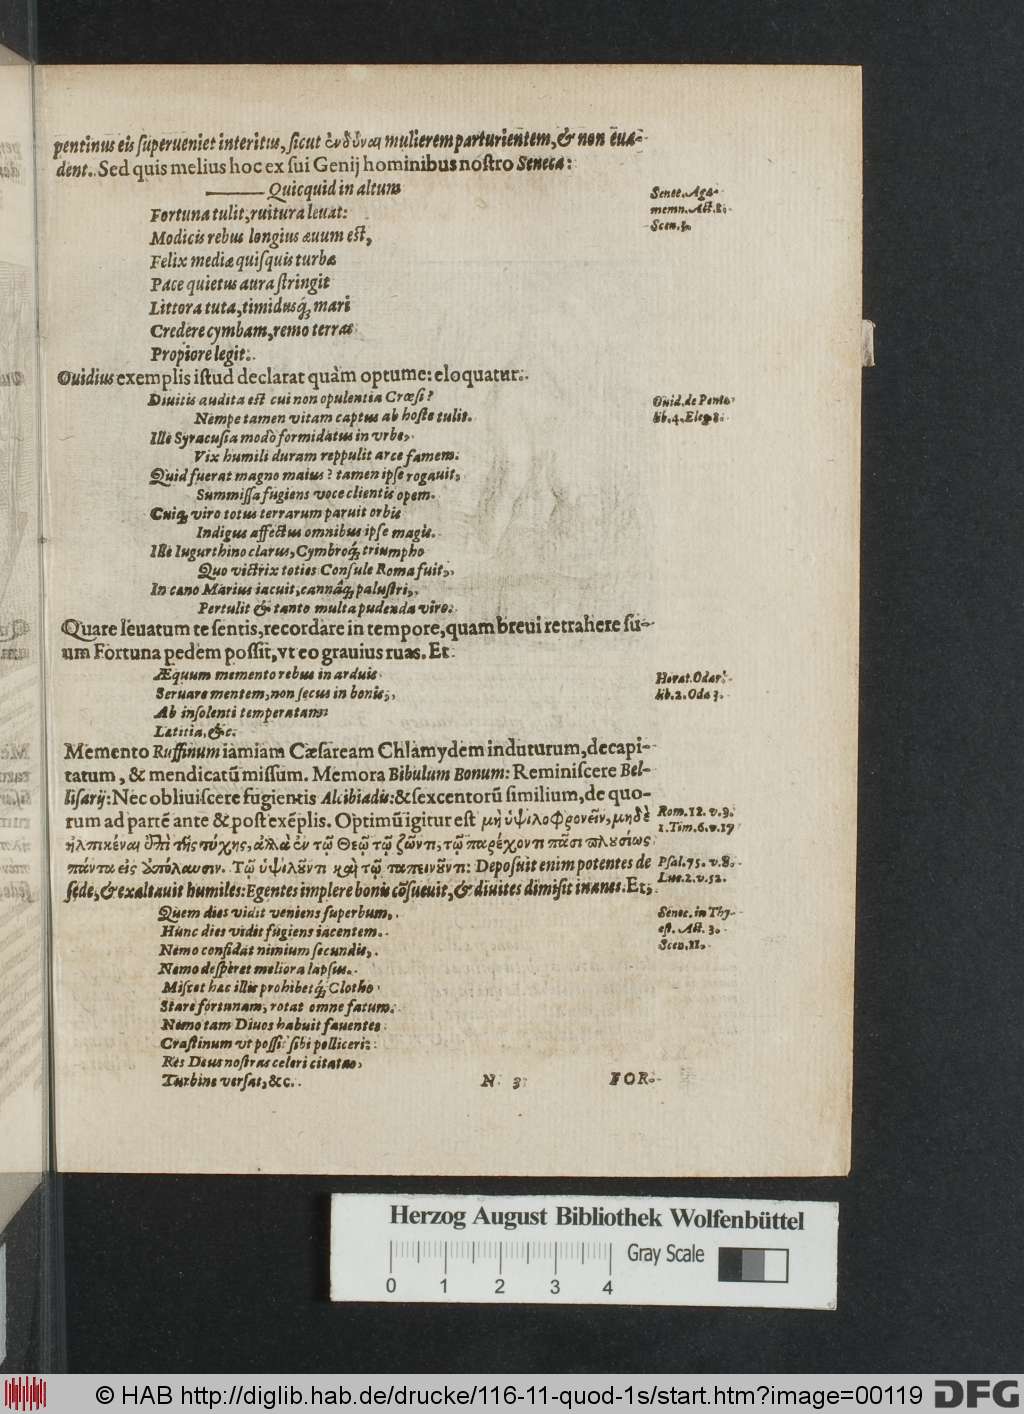 pentinus eis ſuperueniet interitus, ſicut ἐνδόναι mulierem parturientem, & non eua-
dent. Sed quis melius hoc ex ſui Genij hominibus noſtro Seneca:
Quicquid in altum
Senec. Aga-
Fortuna tulit, ruitura leuat:
memn. Act. 8.
Scen. 3.
Modicis rebus longius æuum eſt,
Felix mediæ quiſquis turbæ
Pace quietus aura ſtringit
Littora tuta, timidusq́; mari
Credere cymbam, remo terras
Propiore legit.
Ouidius exemplis iſtud declarat quàm optume: eloquatur.
Diuitis audita eſt cui non opulentia Crœſi?
Ouid. de Ponto
Nempe tamen vitam captus ab hoſte tulit.
lib. 4. Eleg. 8.
Ille Syracuſia modò formidatus in vrbe,
Vix humili duram reppulit arce famem.
Quid fuerat magno maius? tamen ipſe rogauit,
Summiſſa fugiens voce clientis opem.
Cuiq; viro totus terrarum paruit orbis
Indigus affectus omnibus ipſe magis.
Ille Iugurthino clarus, Cymbroq́; triumpho
Quo victrix toties Conſule Roma fuit,
In cano Marius iacuit, cannâq́; paluſtri,
Pertulit & tanto multa pudenda viro.
Quare leuatum te ſentis, recordare in tempore, quam breui retrahere ſu-
um Fortuna pedem poſſit, vt eo grauius ruas. Et:
Æquum memento rebus in arduis
Horat. Odar.
Seruare mentem, non ſecus in bonis,
lib. 2. Oda 3.
Ab inſolenti temperatam
Lætitia, &c.
Memento Ruffinum iamiam Cæſaream Chlamydem induturum, decapi-
tatum, & mendicatū miſſum. Memora Bibulum Bonum: Reminiſcere Bel-
liſarij: Nec obliuiſcere fugientis Alcibiadis: & ſexcentorū ſimilium, de quo-
rum ad partē ante & poſt exēplis. Optimū igitur eſt μὴ ὑψιλοφρονεῖν, μηδὲ
Rom. 12. v. 3.
1. Tim. 6. v. 17
ἠλπικέναι ἐπὶ τῆς τύχης, ἀλλὰ ἐν τῷ Θεῷ τῷ ζῶντι, τῷ παρέχοντι πᾶσι πλουσίως
πάντα εἰς ἀπόλαυσιν. Τῷ ὑψιλοῦντι καὶ τῷ ταπεινοῦντι: Depoſuit enim potentes de
Pſal. 75. v. 8.
Luc. 2. v. 52.
ſede, & exaltauit humiles: Egentes implere bonis cōſueuit, & diuites dimiſit inanes. Et;
Quem dies vidit veniens ſuperbum,
Senec. in Thy-
Hunc dies vidit fugiens iacentem.
eſt. Act. 3.
Nemo confidat nimium ſecundis,
Scen. 11.
Nemo deſperet meliora lapſus.
Miſcet hæc illis prohibetq́; Clotho
Stare fortunam, rotat omne fatum.
Nemo tam Diuos habuit fauentes
Craſtinum vt poſſit ſibi polliceri:
Res Deus noſtras celeri citatas
Turbine verſat, &c.
N 3
FOR-
Herzog August Bibliothek Wolfenbüttel
Gray Scale
0 1 2 3 4
© HAB http://diglib.hab.de/drucke/116-11-quod-1s/start.htm?image=00119
DFG